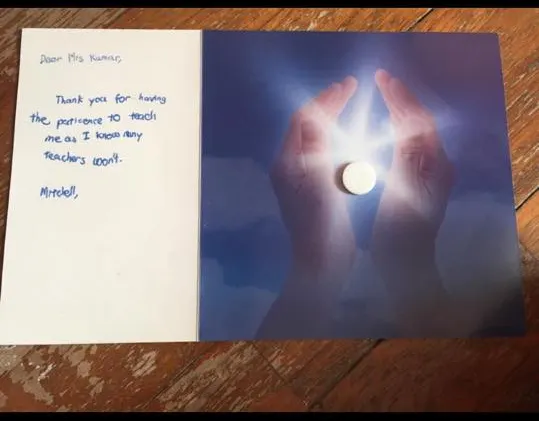 Dear Mrs Kumar,
Thank you for having
the paticence to teach
me as I know many
teachers won't.
Mitchell,